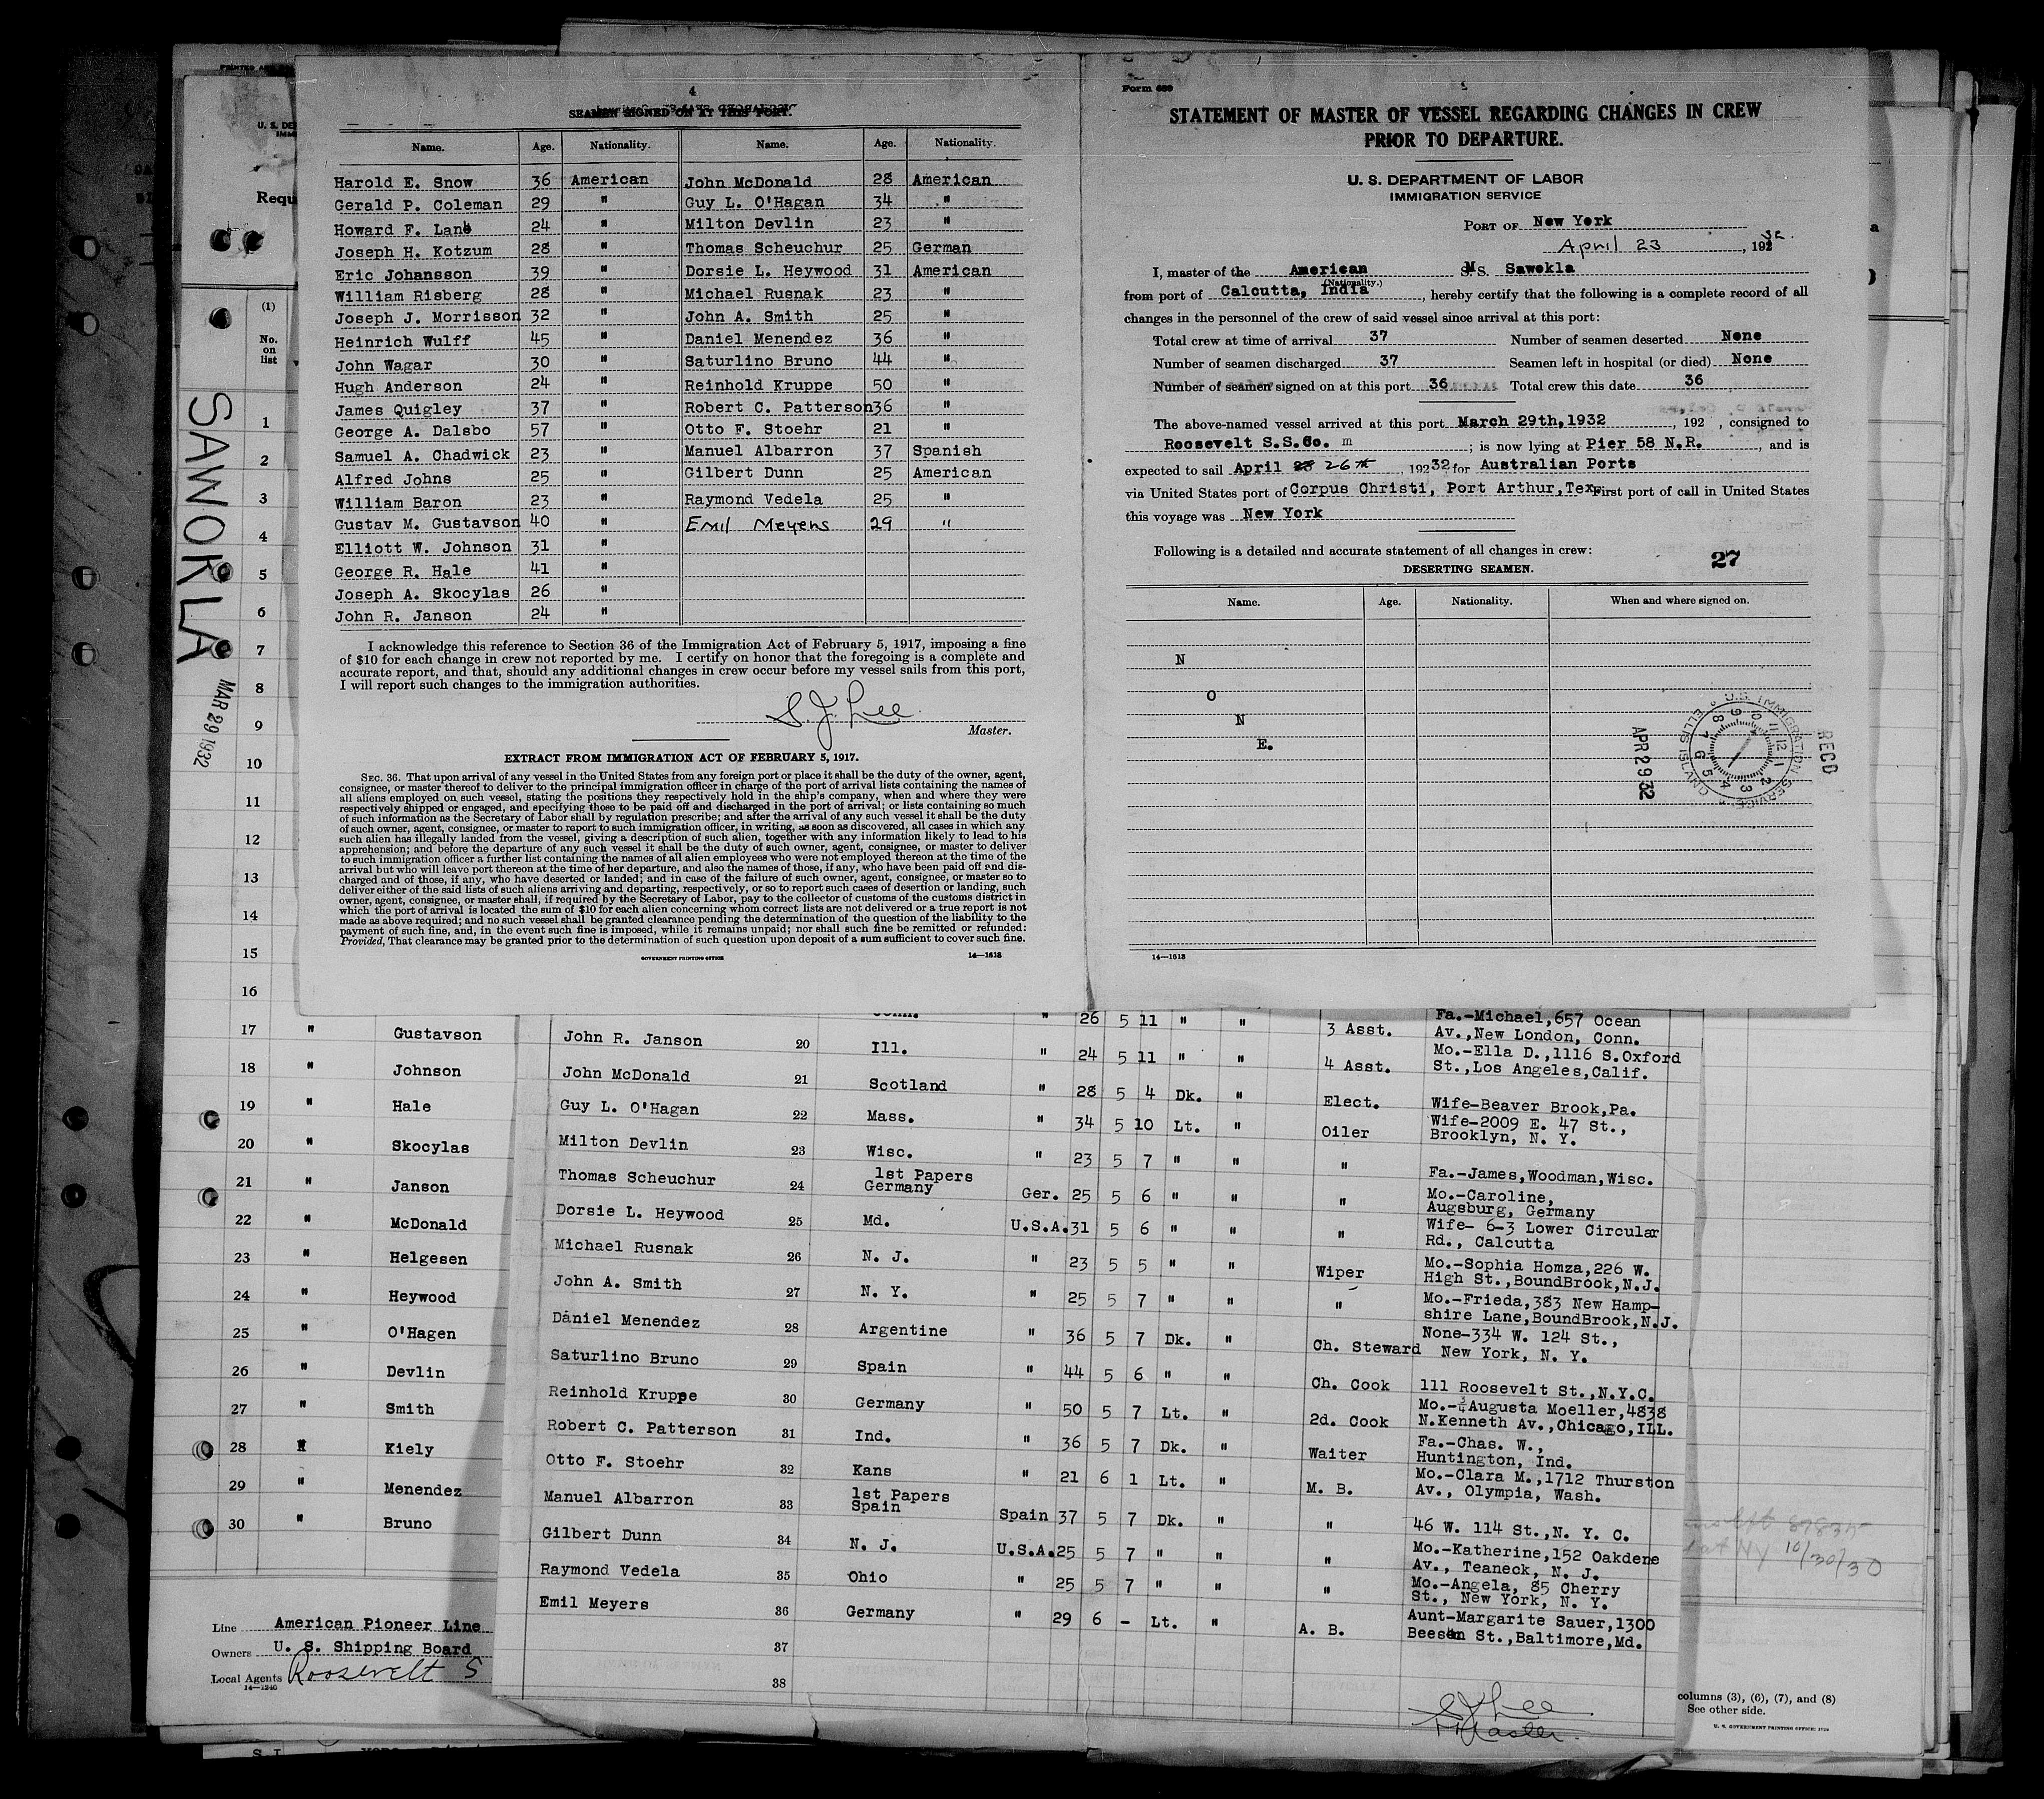 4
SEAMEN SIGNED ON AT THIS PORT.
Name. Age. Nationality. Name. Age. Nationality.
Harold E. Snow 36 American John McDonald 28 American
Gerald P. Coleman 29 " Guy L. O'Hagan 34 "
Howard F. Lane 24 " Milton Devlin 23 "
Joseph H. Kotzum 28 " Thomas Scheuchur 25 German
Eric Johansson 39 " Dorsie L. Heywood 31 American
William Risberg 28 " Michael Rusnak 23 "
Joseph J. Morrisson 32 " John A. Smith 25 "
Heinrich Wulff 45 " Daniel Menendez 36 "
John Wagar 30 " Saturlino Bruno 44 "
Hugh Anderson 24 " Reinhold Kruppe 50 "
James Quigley 37 " Robert C. Patterson 36 "
George A. Dalsbo 57 " Otto F. Stoehr 21 "
Samuel A. Chadwick 23 " Manuel Albarron 37 Spanish
Alfred Johns 25 " Gilbert Dunn 25 American
William Baron 23 " Raymond Vedela 25 "
Gustav M. Gustavson 40 " Emil Meyers 29 "
Elliott W. Johnson 31 "
George R. Hale 41 "
Joseph A. Skocylas 26 "
John R. Janson 24 "
I acknowledge this reference to Section 36 of the Immigration Act of February 5, 1917, imposing a fine
of $10 for each change in crew not reported by me. I certify on honor that the foregoing is a complete and
accurate report, and that, should any additional changes in crew occur before my vessel sails from this port,
I will report such changes to the immigration authorities.
S. J. Lee
Master.
EXTRACT FROM IMMIGRATION ACT OF FEBRUARY 5, 1917.
SEC. 36. That upon arrival of any vessel in the United States from any foreign port or place it shall be the duty of the owner, agent,
consignee, or master thereof to deliver to the principal immigration officer in charge of the port of arrival lists containing the names of
all aliens employed on such vessel, stating the positions they respectively hold in the ship's company, when and where they were
respectively shipped or engaged, and specifying those to be paid off and discharged in the port of arrival; or lists containing so much
of such information as the Secretary of Labor shall by regulation prescribe; and after the arrival of any such vessel it shall be the duty
of such owner, agent, consignee, or master to report to such immigration officer, in writing, as soon as discovered, all cases in which any
such alien has illegally landed from the vessel, giving a description of such alien, together with any information likely to lead to his
apprehension; and before the departure of any such vessel it shall be the duty of such owner, agent, consignee, or master to deliver
to such immigration officer a further list containing the names of all alien employees who were not employed thereon at the time of the
arrival but who will leave port thereon at the time of her departure, and also the names of those, if any, who have been paid off and dis-
charged and of those, if any, who have deserted or landed; and in case of the failure of such owner, agent, consignee, or master so to
deliver either of the said lists of such aliens arriving and departing, respectively, or so to report such cases of desertion or landing, such
owner, agent, consignee, or master shall, if required by the Secretary of Labor, pay to the collector of customs of the customs district in
which the port of arrival is located the sum of $10 for each alien concerning whom correct lists are not delivered or a true report is not
made as above required; and no such vessel shall be granted clearance pending the determination of the question of the liability to the
payment of such fine, and, in the event such fine is imposed, while it remains unpaid; nor shall such fine be remitted or refunded:
Provided, That clearance may be granted prior to the determination of such question upon deposit of a sum sufficient to cover such fine.
GOVERNMENT PRINTING OFFICE 14—1613
Form 689
STATEMENT OF MASTER OF VESSEL REGARDING CHANGES IN CREW
PRIOR TO DEPARTURE.
U. S. DEPARTMENT OF LABOR
IMMIGRATION SERVICE
PORT OF New York
April 23, 1932
I, master of the American M S. Sawokla
(Nationality.)
from port of Calcutta, India, hereby certify that the following is a complete record of all
changes in the personnel of the crew of said vessel since arrival at this port:
Total crew at time of arrival 37 Number of seamen deserted None
Number of seamen discharged 37 Seamen left in hospital (or died) None
Number of seamen signed on at this port 36 Total crew this date 36
The above-named vessel arrived at this port March 29th, 1932, 192 , consigned to
Roosevelt S.S.Co. ; is now lying at Pier 58 N.R. , and is
expected to sail April 26th, 1932 for Australian Ports
via United States port of Corpus Christi, Port Arthur, Tex. First port of call in United States
this voyage was New York
Following is a detailed and accurate statement of all changes in crew:
27
DESERTING SEAMEN.
Name. Age. Nationality. When and where signed on.
N
O
N
E.
U.S. IMMIGRATION SERVICE ELLIS ISLAND
RECD
APR 29 32
14—1613
SAWOKLA
MAR 29 1932
Requ
(1)
No.
on
list
1
2
3
4
5
6
7
8
9
10
11
12
13
14
15
16
17 " Gustavson
18 " Johnson
19 " Hale
20 " Skocylas
21 " Janson
22 " McDonald
23 " Helgesen
24 " Heywood
25 " O'Hagen
26 " Devlin
27 " Smith
28 " Kiely
29 " Menendez
30 " Bruno
Line American Pioneer Line
Owners U. S. Shipping Board
Local Agents Roosevelt S
14—1240
" 26 5 11 " " 3 Asst. Fa.-Michael, 657 Ocean
Av., New London, Conn.
John R. Janson 20 Ill. " 24 5 11 " " 4 Asst. Mo.-Ella D., 1116 S.Oxford
St., Los Angeles, Calif.
John McDonald 21 Scotland " 28 5 4 Dk. " Elect. Wife-Beaver Brook, Pa.
Guy L. O'Hagan 22 Mass. " 34 5 10 Lt. " Oiler Wife-2009 E. 47 St.,
Brooklyn, N. Y.
Milton Devlin 23 Wisc. " 23 5 7 " " " Fa.-James, Woodman, Wisc.
Thomas Scheuchur 24 1st Papers
Germany Ger. 25 5 6 " " " Mo.-Caroline,
Augsburg, Germany
Dorsie L. Heywood 25 Md. U.S.A. 31 5 6 " " " Wife- 6-3 Lower Circular
Rd., Calcutta
Michael Rusnak 26 N. J. " 23 5 5 " " Wiper Mo.-Sophia Homza, 226 W.
High St., BoundBrook, N.J.
John A. Smith 27 N. Y. " 25 5 7 " " " Mo.-Frieda, 383 New Hamp-
shire Lane, BoundBrook, N.J.
Daniel Menendez 28 Argentine " 36 5 7 Dk. " Ch. Steward None-334 W. 124 St.,
New York, N. Y.
Saturlino Bruno 29 Spain " 44 5 6 " " Ch. Cook 111 Roosevelt St., N.Y.C.
Reinhold Kruppe 30 Germany " 50 5 7 Lt. " 2d. Cook Mo.-Augusta Moeller, 4838
N.Kenneth Av., Chicago, ILL.
Robert C. Patterson 31 Ind. " 36 5 7 Dk. " Waiter Fa.-Chas. W.,
Huntington, Ind.
Otto F. Stoehr 32 Kans " 21 6 1 Lt. " M. B. Mo.-Clara M., 1712 Thurston
Av., Olympia, Wash.
Manuel Albarron 33 1st Papers
Spain Spain 37 5 7 Dk. " " 46 W. 114 St., N. Y. C.
Gilbert Dunn 34 N. J. U.S.A. 25 5 7 " " " Mo.-Katherine, 152 Oakdene
Av., Teaneck, N. J.
Raymond Vedela 35 Ohio " 25 5 7 " " " Mo.-Angela, 85 Cherry
St., New York, N. Y.
Emil Meyers 36 Germany " 29 6 - Lt. " A. B. Aunt-Margarite Sauer, 1300
St., Baltimore, Md.
37
38
S J Lee
Master.
at NY 10/30/30
columns (3), (6), (7), and (8)
See other side.
U. S. GOVERNMENT PRINTING OFFICE